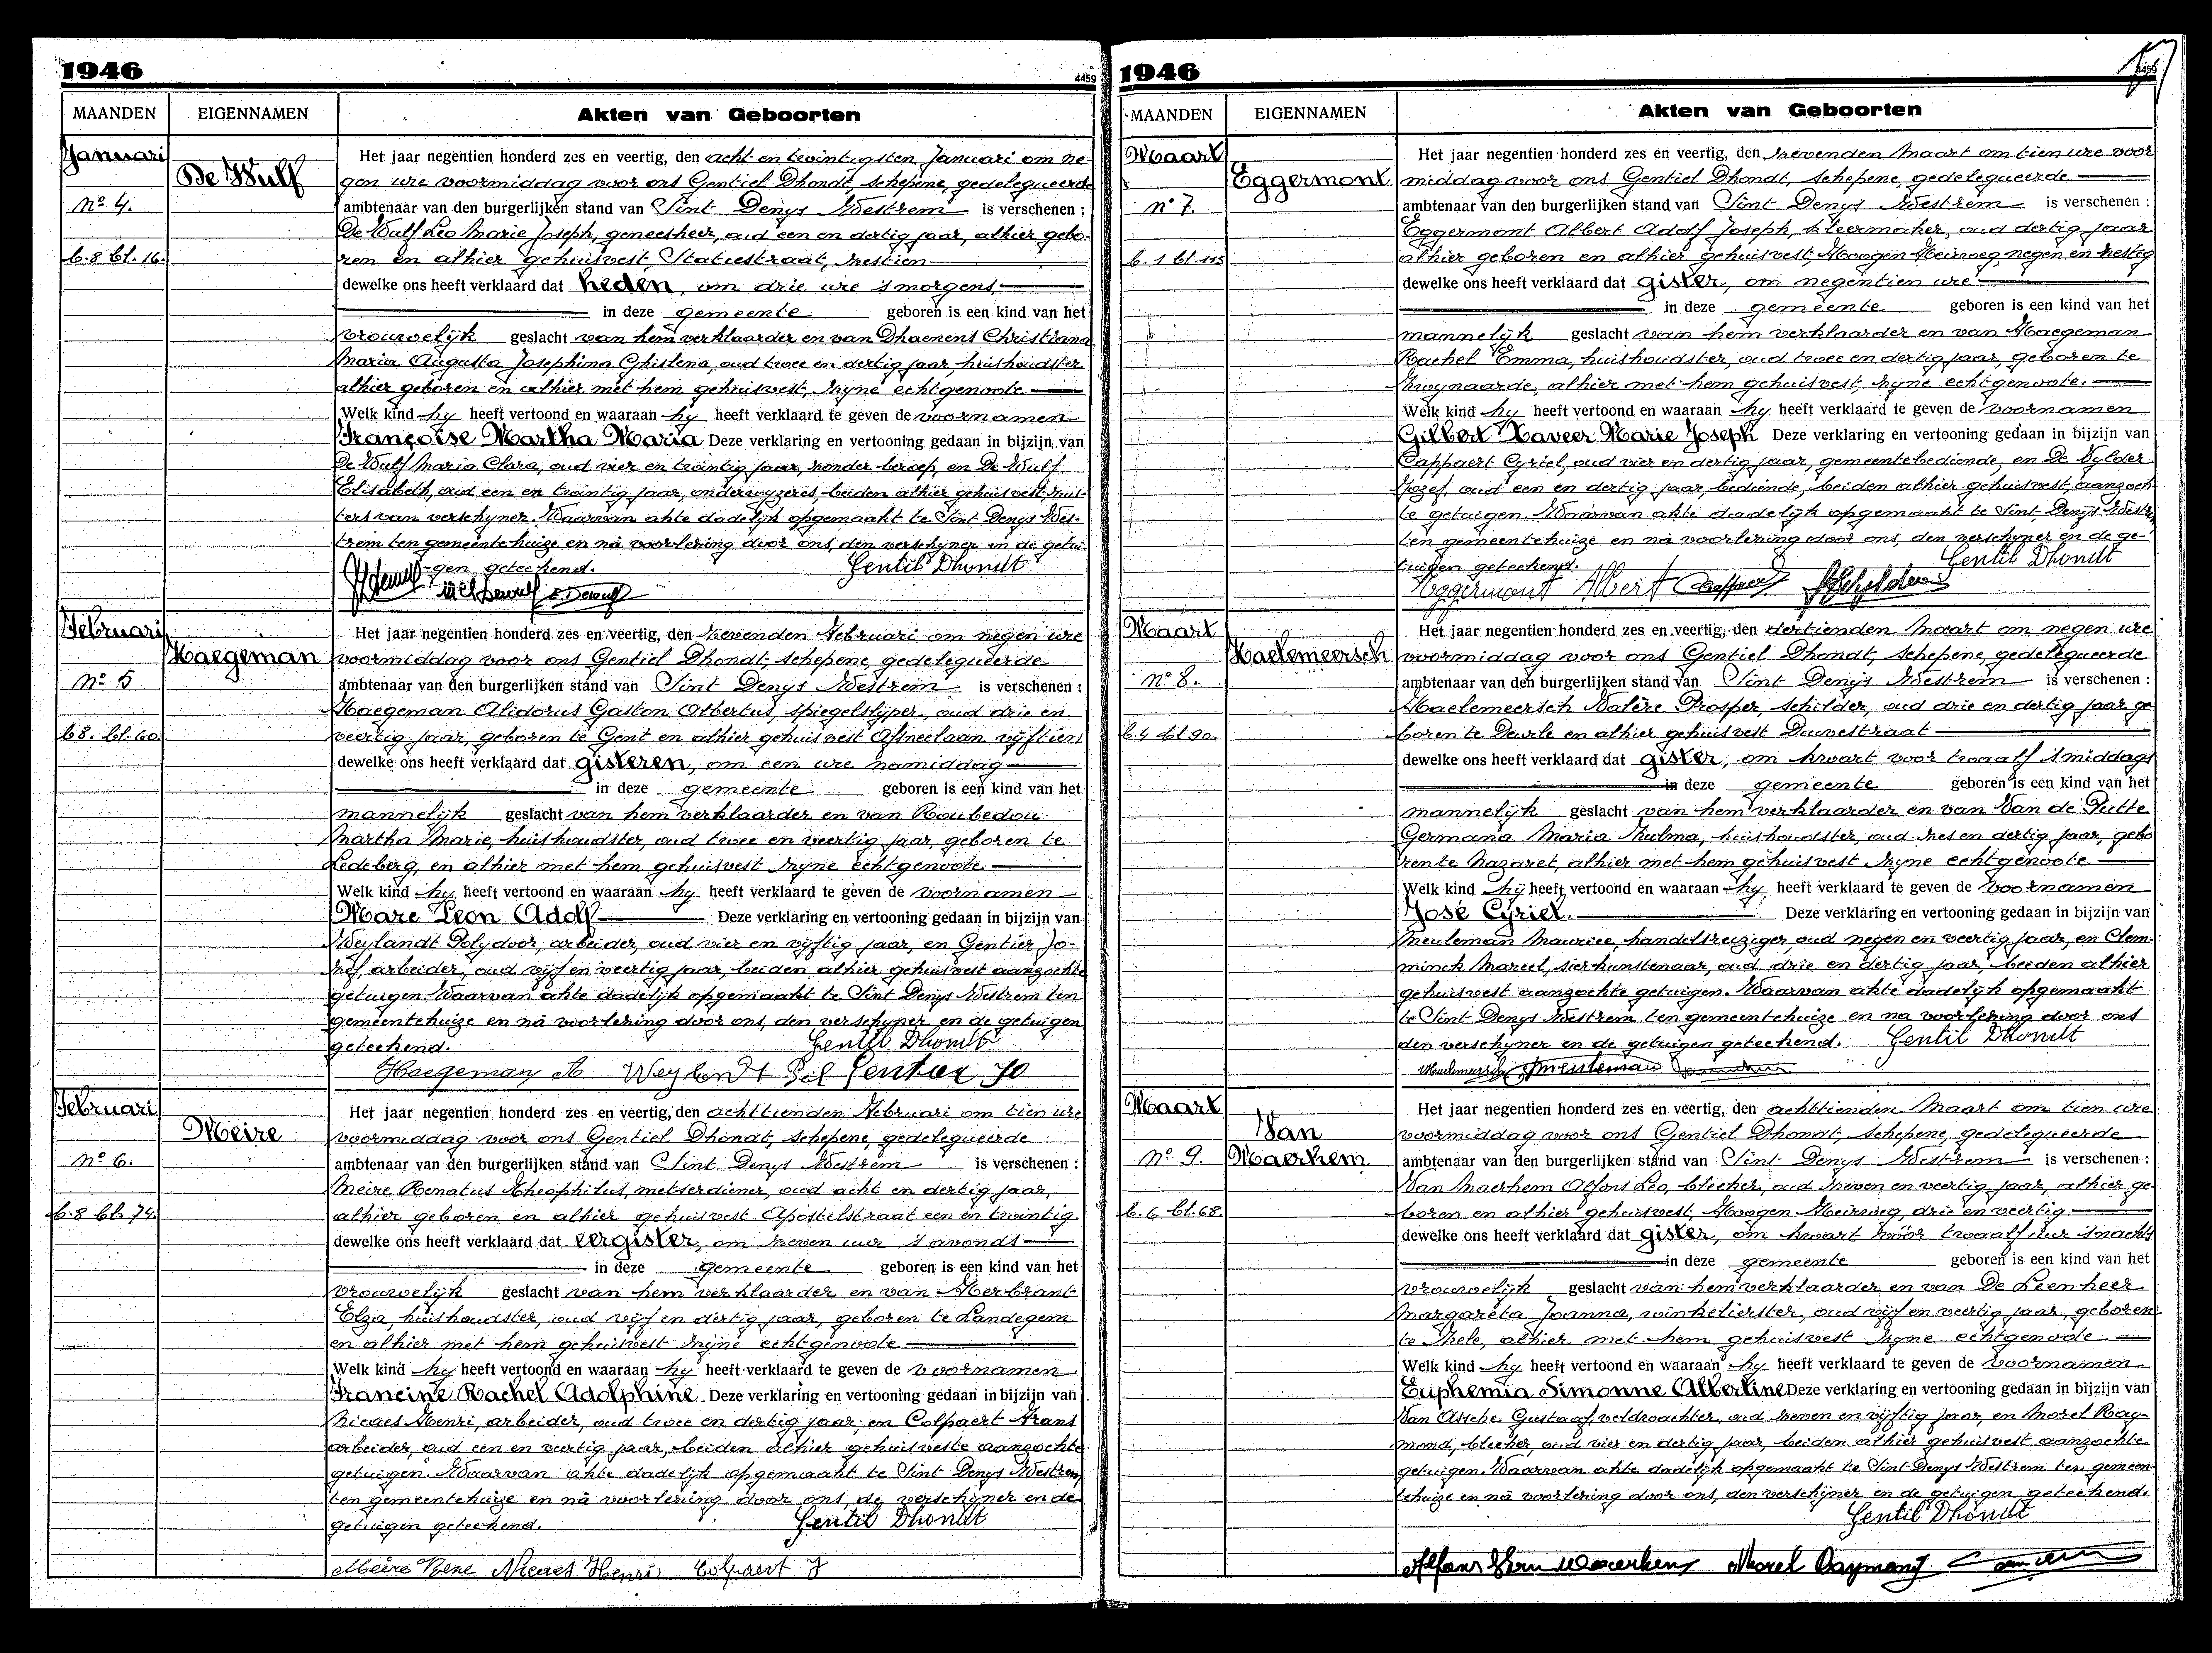 1946
4459
MAANDEN EIGENNAMEN Akten van Geboorten
Januari
De Wulf
No 4.
b.8 bl.16.
Het jaar negentien honderd zes en veertig, den acht en twintigsten Januari om ne-
gen ure voormiddag voor ons Gentiel Dhondt, schepene, gedelegueerde
ambtenaar van den burgerlijken stand van Sint Denys Westrem is verschenen :
De Wulf Leo Marie Joseph, geneesheer, oud een en dertig jaar, alhier gebo-
ren en alhier gehuisvest, Statiestraat, zestien
dewelke ons heeft verklaard dat heden, om drie ure 's morgens,
in deze gemeente geboren is een kind van het
vrouwelijk geslacht van hem verklaarder en van Dhaenens Christiana
Maria Augusta Josephina Ghislena, oud twee en dertig jaar, huishoudster
alhier geboren en alhier met hem gehuisvest, zyne echtgenoote
Welk kind hy heeft vertoond en waaraan hy heeft verklaard te geven de voornamen
Françoise Martha Maria Deze verklaring en vertooning gedaan in bijzijn van
De Wulf Maria Clara, oud vier en twintig jaar, zonder beroep, en De Wulf
Elisabeth, oud een en twintig jaar, onderwyzeres, beiden alhier gehuisvest, zus-
ters van verschyner. Waarvan akte dadelyk opgemaakt te Sint Denys Wes-
trem ten gemeentehuize en nà voorlezing door ons, den verschyner en de getui-
gen geteekend. Gentil Dhondt
Februari
Haegeman
No 5
b8. bl.60.
Het jaar negentien honderd zes en veertig, den zevenden Februari om negen ure
voormiddag voor ons Gentiel Dhondt, schepene, gedelegueerde
ambtenaar van den burgerlijken stand van Sint Denys Westrem is verschenen :
Haegeman Alidorus Gaston Albertus, spiegelslyper, oud drie en
veertig jaar, geboren te Gent en alhier gehuisvest Afsneelaan vyftien
dewelke ons heeft verklaard dat gisteren, om een ure namiddag
in deze gemeente geboren is een kind van het
mannelijk geslacht van hem verklaarder en van Roubedou
Martha Marie, huishoudster, oud twee en veertig jaar, geboren te
Ledeberg, en alhier met hem gehuisvest zyne echtgenoote
Welk kind hy heeft vertoond en waaraan hy heeft verklaard te geven de voornamen
Marc Leon Adolf Deze verklaring en vertooning gedaan in bijzijn van
Weylandt Polydoor, arbeider, oud vier en vyftig jaar, en Gentier Jo-
zef, arbeider, oud vyf en veertig jaar, beiden alhier gehuisvest aanzochte
getuigen. Waarvan akte dadelyk opgemaakt te Sint Denys Westrem ten
gemeentehuize en nà voorlezing door ons, den verschyner en de getuigen
geteekend. Gentil Dhondt
Haegeman A Weylandt Pol Gentier Jo
Februari
Meire
No 6.
b.8 bl.74.
Het jaar negentien honderd zes en veertig, den achttienden Februari om tien ure
voormiddag voor ons Gentiel Dhondt, schepene, gedelegueerde
ambtenaar van den burgerlijken stand van Sint Denys Westrem is verschenen :
Meire Renatus Theophilus, metserdiener, oud acht en dertig jaar,
alhier geboren en alhier gehuisvest Apostelstraat een en twintig
dewelke ons heeft verklaard dat eergister, om zeven uur 's avonds
in deze gemeente geboren is een kind van het
vrouwelijk geslacht van hem verklaarder en van Herbrant
Elza, huishoudster, oud vyf en dertig jaar, geboren te Landegem
en alhier met hem gehuisvest zyne echtgenoote
Welk kind hy heeft vertoond en waaraan hy heeft verklaard te geven de voornamen
Francine Rachel Adolphine Deze verklaring en vertooning gedaan in bijzijn van
Nicaes Henri, arbeider, oud twee en dertig jaar, en Colpaert Frans
arbeider, oud een en veertig jaar, beiden alhier gehuisveste aanzochte
getuigen. Waarvan akte dadelyk opgemaakt te Sint Denys Westrem
ten gemeentehuize en nà voorlezing door ons, de verschyner en de
getuigen geteekend. Gentil Dhondt
Meire Rene Nicaes Henri Colpaert F
1946
4459
MAANDEN EIGENNAMEN Akten van Geboorten
Maart
Eggermont
no 7.
b.1 bl.115
Het jaar negentien honderd zes en veertig, den zevenden Maart om tien ure voor
middag voor ons Gentiel Dhondt, schepene, gedelegueerde
ambtenaar van den burgerlijken stand van Sint Denys Westrem is verschenen :
Eggermont Albert Adolf Joseph, kleermaker, oud dertig jaar
alhier geboren en alhier gehuisvest, Hoogen Heirweg, negen en zestig
dewelke ons heeft verklaard dat gister, om negentien ure
in deze gemeente geboren is een kind van het
mannelijk geslacht van hem verklaarder en van Haegeman
Rachel Emma, huishoudster, oud twee en dertig jaar, geboren te
Zwynaarde, alhier met hem gehuisvest, zyne echtgenoote.
Welk kind hy heeft vertoond en waaraan hy heeft verklaard te geven de voornamen
Gilbert Xaveer Marie Joseph Deze verklaring en vertooning gedaan in bijzijn van
Cappaert Cyriel, oud vier en dertig jaar, gemeentebediende, en De Vylder
Jozef, oud een en dertig jaar, bediende, beiden alhier gehuisvest, aanzoch-
te getuigen. Waarvan akte dadelyk opgemaakt te Sint Denys Westrem
ten gemeentehuize en nà voorlezing door ons, den verschyner en de ge-
tuigen geteekend. Gentil Dhondt
Eggermont Albert
Maart
Haelemeersch
no 8.
b.4 bl 90.
Het jaar negentien honderd zes en veertig, den dertienden Maart om negen ure
voormiddag voor ons Gentiel Dhondt, schepene, gedelegueerde
ambtenaar van den burgerlijken stand van Sint Denys Westrem is verschenen :
Haelemeersch Valère Prosper, schilder, oud drie en dertig jaar ge
boren te Deurle en alhier gehuisvest Duivestraat
dewelke ons heeft verklaard dat gister, om kwart voor twaalf 's middags
in deze gemeente geboren is een kind van het
mannelyk geslacht van hem verklaarder en van Van de Putte
Germana Maria Zulma, huishoudster, oud zes en dertig jaar, gebo
ren te Nazaret, alhier met hem gehuisvest zyne echtgenoote
Welk kind hij heeft vertoond en waaraan hy heeft verklaard te geven de voornamen
José Cyriel. Deze verklaring en vertooning gedaan in bijzijn van
Meuleman Maurice, handelsreiziger oud negen en veertig jaar, en Clem-
minck Marcel, sierkunstenaar, oud drie en dertig jaar, beiden alhier
gehuisvest aanzochte getuigen. Waarvan akte dadelyk opgemaakt
te Sint Denys Westrem ten gemeentehuize en na voorlezing door ons
den verschyner en de getuigen geteekend. Gentil Dhondt
Maart
Van
No 9. Maerhem
b.6 bl.68.
Het jaar negentien honderd zes en veertig, den achttienden Maart om tien ure
voormiddag voor ons Gentiel Dhondt, schepene, gedelegueerde
ambtenaar van den burgerlijken stand van Sint Denys Westrem is verschenen :
Van Maerhem Alfons Leo, bleeker, oud zeven en veertig jaar, alhier ge-
boren en alhier gehuisvest, Hoogen Heirweg, drie en veertig
dewelke ons heeft verklaard dat gister, om kwart vóór twaalf uur 's nachts
in deze gemeente geboren is een kind van het
vrouwelyk geslacht van hem verklaarder en van De Leenheer
Margareta Joanna, winkelierster, oud vyf en veertig jaar, geboren
te Zele, alhier met hem gehuisvest zyne echtgenoote
Welk kind hy heeft vertoond en waaraan hy heeft verklaard te geven de voornamen
Euphemia Simonne Albertine Deze verklaring en vertooning gedaan in bijzijn van
Van Assche Gustaaf, veldwachter, oud zeven en vyftig jaar, en Morel Ray-
mond, bleeker, oud vier en dertig jaar, beiden alhier gehuisvest aanzochte
getuigen. Waarvan akte dadelyk opgemaakt te Sint Denys Westrem ten gemeen-
tehuize en nà voorlezing door ons, den verschyner en de getuigen geteekend.
Gentil Dhondt
Morel Raymond